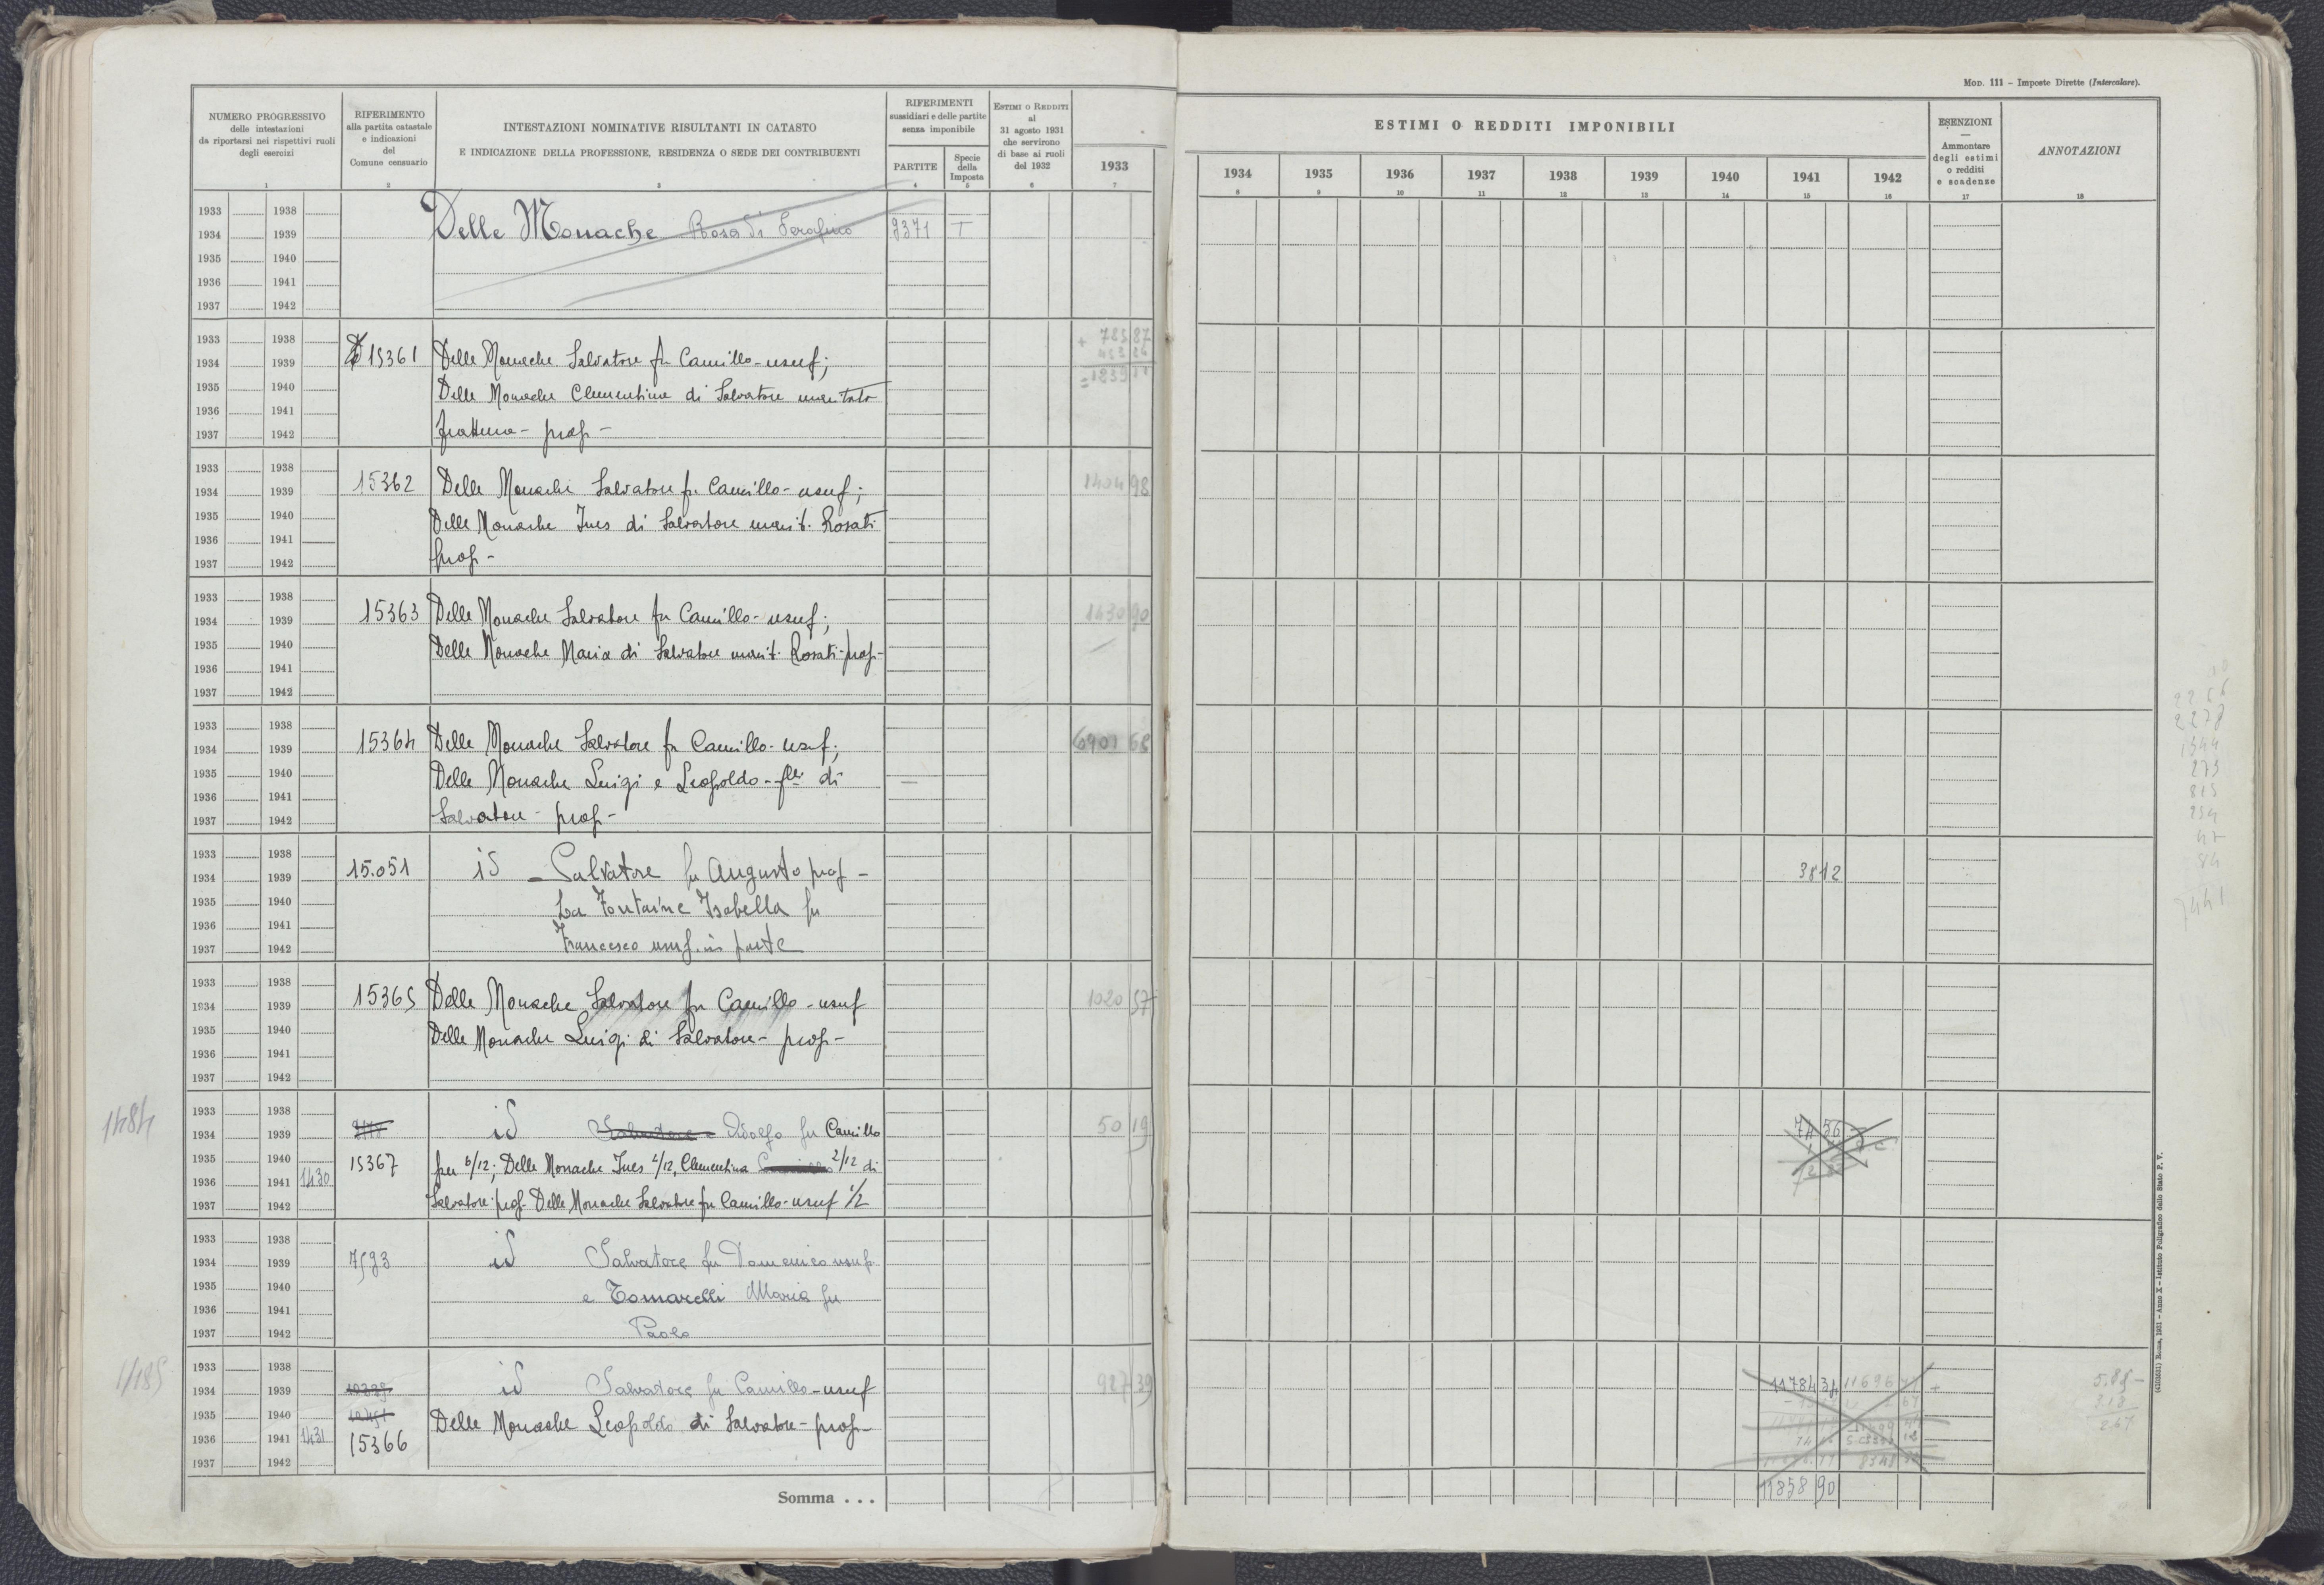 MOD. 111 – Imposte Dirette (Intercalare).
NUMERO PROGRESSIVO
delle intestazioni
da riportarsi nei rispettivi ruoli
degli esercizi
RIFERIMENTO
alla partita catastale
e indicazioni
del
Comune censuario
INTESTAZIONI NOMINATIVE RISULTANTI IN CATASTO
E INDICAZIONE DELLA PROFESSIONE, RESIDENZA O SEDE DEI CONTRIBUENTI
RIFERIMENTI
sussidiari e delle partite
senza imponibile
PARTITE
Specie
della
Imposta
ESTIMI O REDDITI
al
31 agosto 1931
che servirono
di base ai ruoli
del 1932
1933
ESTIMI O REDDITI IMPONIBILI
1934 1935 1936 1937 1938 1939 1940 1941 1942
ESENZIONI
—
Ammontare
degli estimi
o redditi
e scadenze
ANNOTAZIONI
1 2 3 4 5 6 7 8 9 10 11 12 13 14 15 16 17 18
1933 1938
1934 1939 Delle Monache Rosa di Serafino 9371 T
1935 1940
1936 1941
1937 1942
1933 1938
1934 1939 15361 Delle Monache Salvatore fu Camillo - usuf;
1935 1940 Delle Monache Clementina di Salvatore
1936 1941
1937 1942 prop -
1933 1938
1934 1939 15362 Delle Monache Salvatore fu Camillo - usuf; 1404 98
1935 1940 Delle Monache Ines di Salvatore marit. Rosati
1936 1941
1937 1942 prop -
1933 1938
1934 1939 15363 Delle Monache Salvatore fu Camillo - usuf; 1430 90
1935 1940 Delle Monache Maria di Salvatore marit. Rosati - prop -
1936 1941
1937 1942
1933 1938
1934 1939 15364 Delle Monache Salvatore fu Camillo - usuf; 6901 68
1935 1940 Delle Monache Luigi e Leopoldo - flli di
1936 1941
1937 1942 Salvatore - prop -
1933 1938
1934 1939 15.051 id - Salvatore fu Augusto prop - 38 12
1935 1940 La Fontaine Isabella fu
1936 1941
1937 1942 Francesco usuf. in parte
1933 1938
1934 1939 15365 Delle Monache Salvatore fu Camillo - usuf 1020 57
1935 1940 Delle Monache Luigi di Salvatore - prop -
1936 1941
1937 1942
1484
1933 1938
1934 1939 id Salvatore Adolfo fu Camillo 50 19 74 56
1935 1940 15367 per 6/12; Delle Monache Ines 4/12, Clementina 2/12 di
1936 1941 1430
1937 1942 Salvatore prop. Delle Monache Salvatore fu Camillo - usuf 1/2
1933 1938
1934 1939 7593 id Salvatore fu Domenico usuf.
1935 1940 e Tomarelli Maria fu
1936 1941
1937 1942 Paolo
1933 1938
1934 1939 id Salvatore fu Camillo - usuf 927 39 11784 34 11696
1935 1940 Delle Monache Leopoldo di Salvatore - prop -
1936 1941 1431 15366
1937 1942
Somma . . . 11858 90
2278
1344
273
815
254
47
84
(4105031) Roma, 1931 – Anno X – Istituto Poligrafico dello Stato P. V.